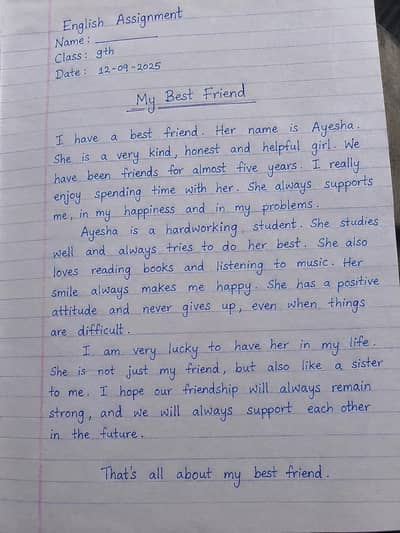 English Assignment
Name: ___________
Class: 9th
Date: 12-09-2025
My Best Friend
I have a best friend. Her name is Ayesha.
She is a very kind, honest and helpful girl. We
have been friends for almost five years. I really
enjoy spending time with her. She always supports
me, in my happiness and in my problems.
Ayesha is a hardworking student. She studies
well and always tries to do her best. She also
loves reading books and listening to music. Her
smile always makes me happy. She has a positive
attitude and never gives up, even when things
are difficult.
I am very lucky to have her in my life.
She is not just my friend, but also like a sister
to me. I hope our friendship will always remain
strong, and we will always support each other
in the future.
That's all about my best friend.